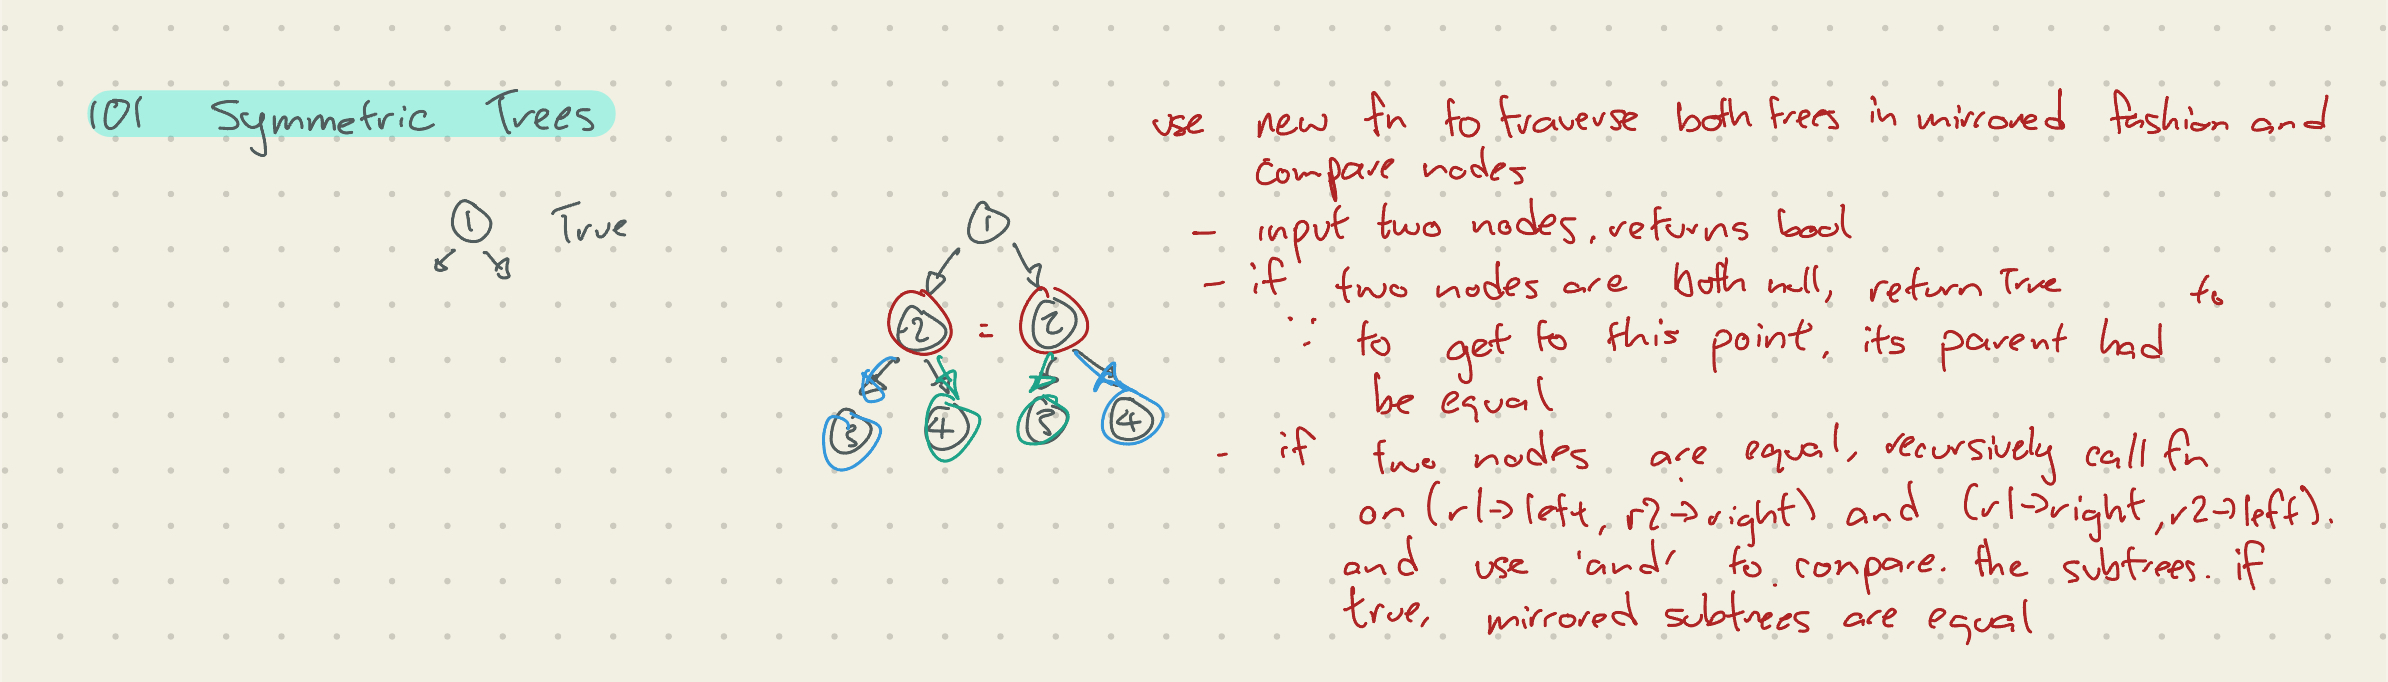 101 Symmetric Trees
1 True
1
2 = 2
3 4 3 4
use new fn to traverse both trees in mirrored fashion and
compare nodes
- input two nodes, returns bool
- if two nodes are both null, return True
∵ to get to this point, its parent had to
be equal
- if two nodes are equal, recursively call fn
on (r1->left, r2->right) and (r1->right, r2->left).
and use 'and' to compare. the subtrees. if
true, mirrored subtrees are equal